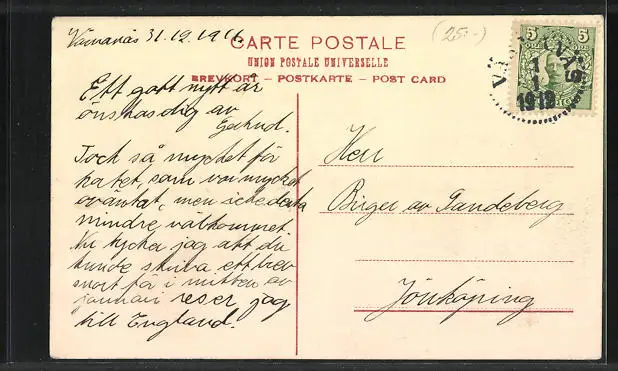 31.12.1911.
(25:-)
CARTE POSTALE
UNION POSTALE UNIVERSELLE
BREVKORT – POSTKARTE – POST CARD
5 5
1
1
1912
Ett godt nytt år
önskas dig av
Tack så mycket för
kortet, som var mycket
oväntat, men icke desto
mindre välkommet.
Nu tycker jag att du
kunde skriva ett brev
snart för i mitten av
januari reser jag
till England.
Herr
Birger av
Jönköping